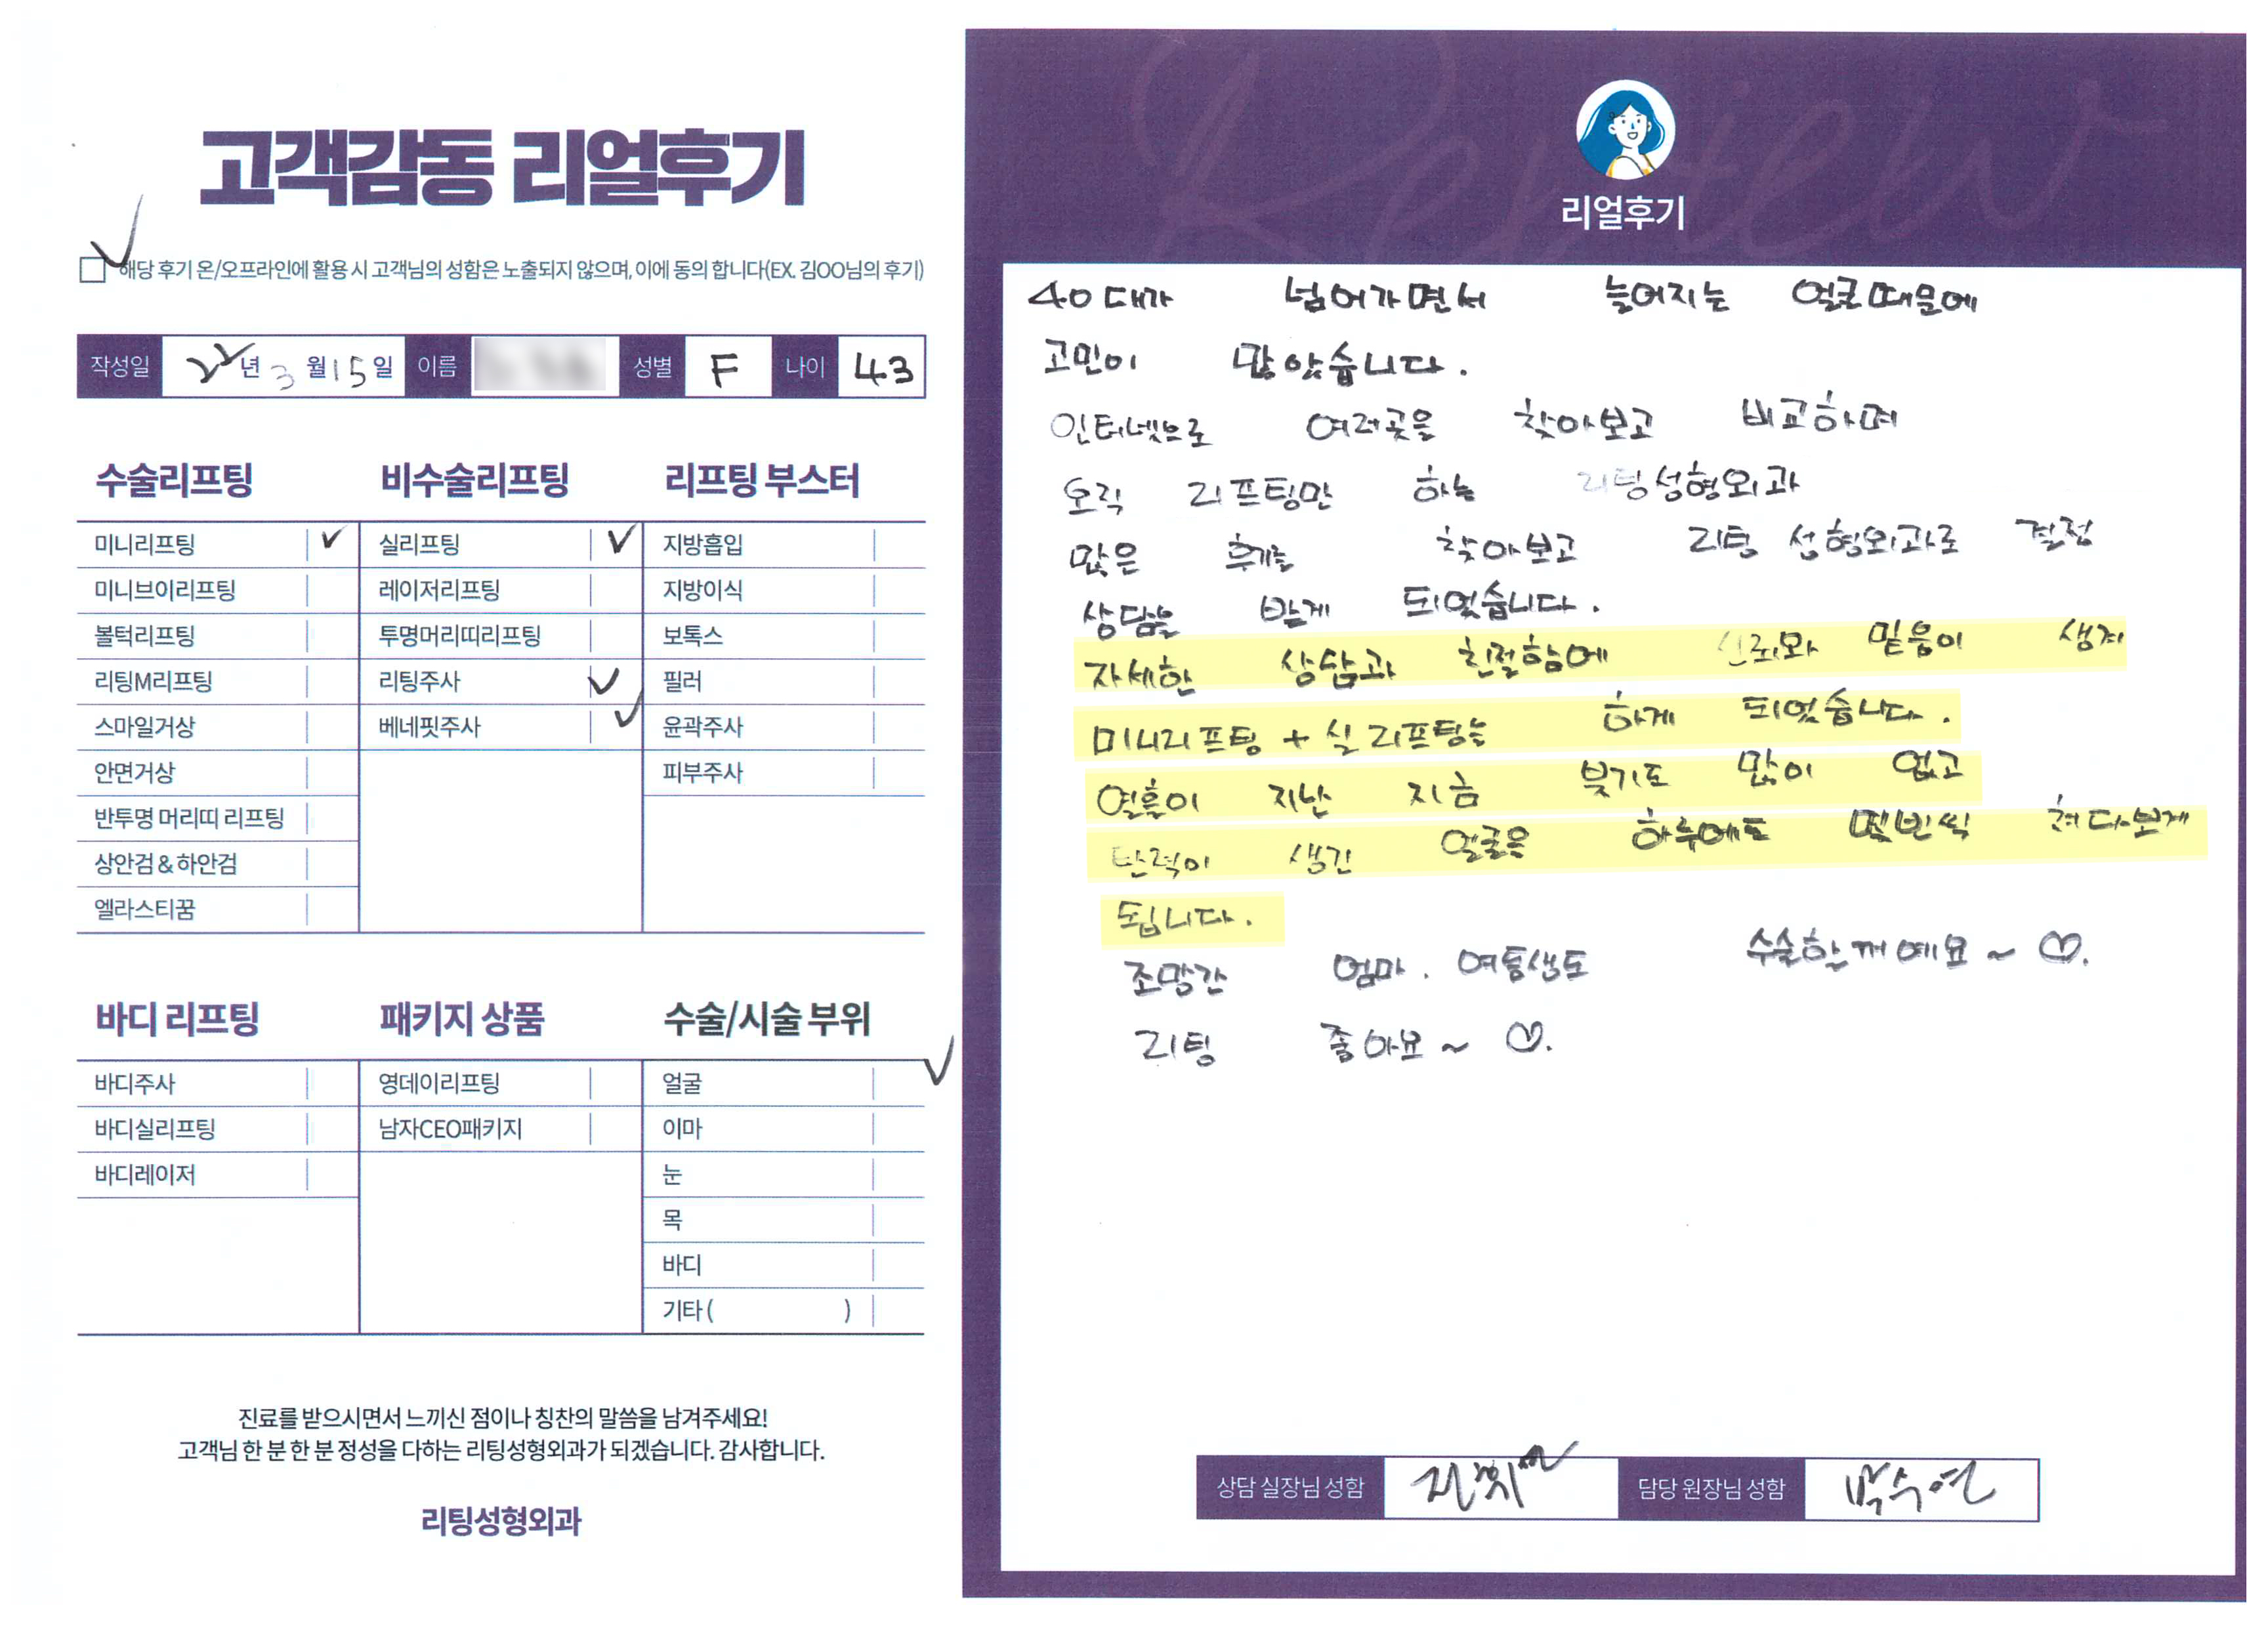 고객감동 리얼후기
해당 후기 온/오프라인에 활용 시 고객님의 성함은 노출되지 않으며, 이에 동의 합니다(EX. 김OO님의 후기)
작성일 22년 3월 15일 이름 성별 F 나이 43
수술리프팅
미니리프팅
미니브이리프팅
볼턱리프팅
리팅M리프팅
스마일거상
안면거상
반투명 머리띠 리프팅
상안검 & 하안검
엘라스티꿈
비수술리프팅
실리프팅
레이저리프팅
투명머리띠리프팅
리팅주사
베네핏주사
리프팅 부스터
지방흡입
지방이식
보톡스
필러
윤곽주사
피부주사
바디 리프팅
바디주사
바디실리프팅
바디레이저
패키지 상품
영데이리프팅
남자CEO패키지
수술/시술 부위
얼굴
이마
눈
목
바디
기타 ( )
진료를 받으시면서 느끼신 점이나 칭찬의 말씀을 남겨주세요!
고객님 한 분 한 분 정성을 다하는 리팅성형외과가 되겠습니다. 감사합니다.
리팅성형외과
Review
리얼후기
40대가 넘어가면서 늘어지는 얼굴때문에
고민이 많았습니다.
인터넷으로 여러곳을 찾아보고 비교하며
오직 리프팅만 하는 리팅성형외과
많은 후기를 찾아보고 리팅 성형외과로 결정
상담을 받게 되었습니다.
자세한 상담과 친절함에 신뢰와 믿음이 생겨
미니리프팅 + 실리프팅을 하게 되었습니다.
열흘이 지난 지금 붓기도 많이 없고
탄력이 생긴 얼굴을 하루에도 몇번씩 쳐다보게
됩니다.
조만간 엄마. 여동생도 수술할께예요~ ♡.
리팅 좋아요~ ♡.
상담 실장님 성함 담당 원장님 성함 박수연